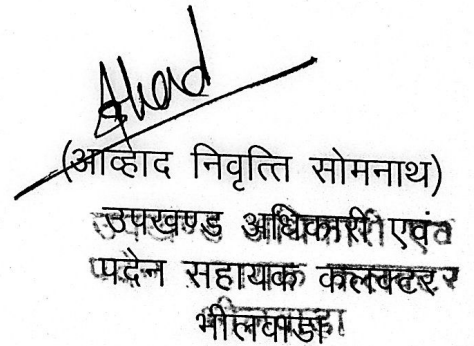 (आव्हाद निवृत्ति सोमनाथ)
उपखण्ड अधिकारी एवं
पदेन सहायक कलक्टर
भीलवाडा